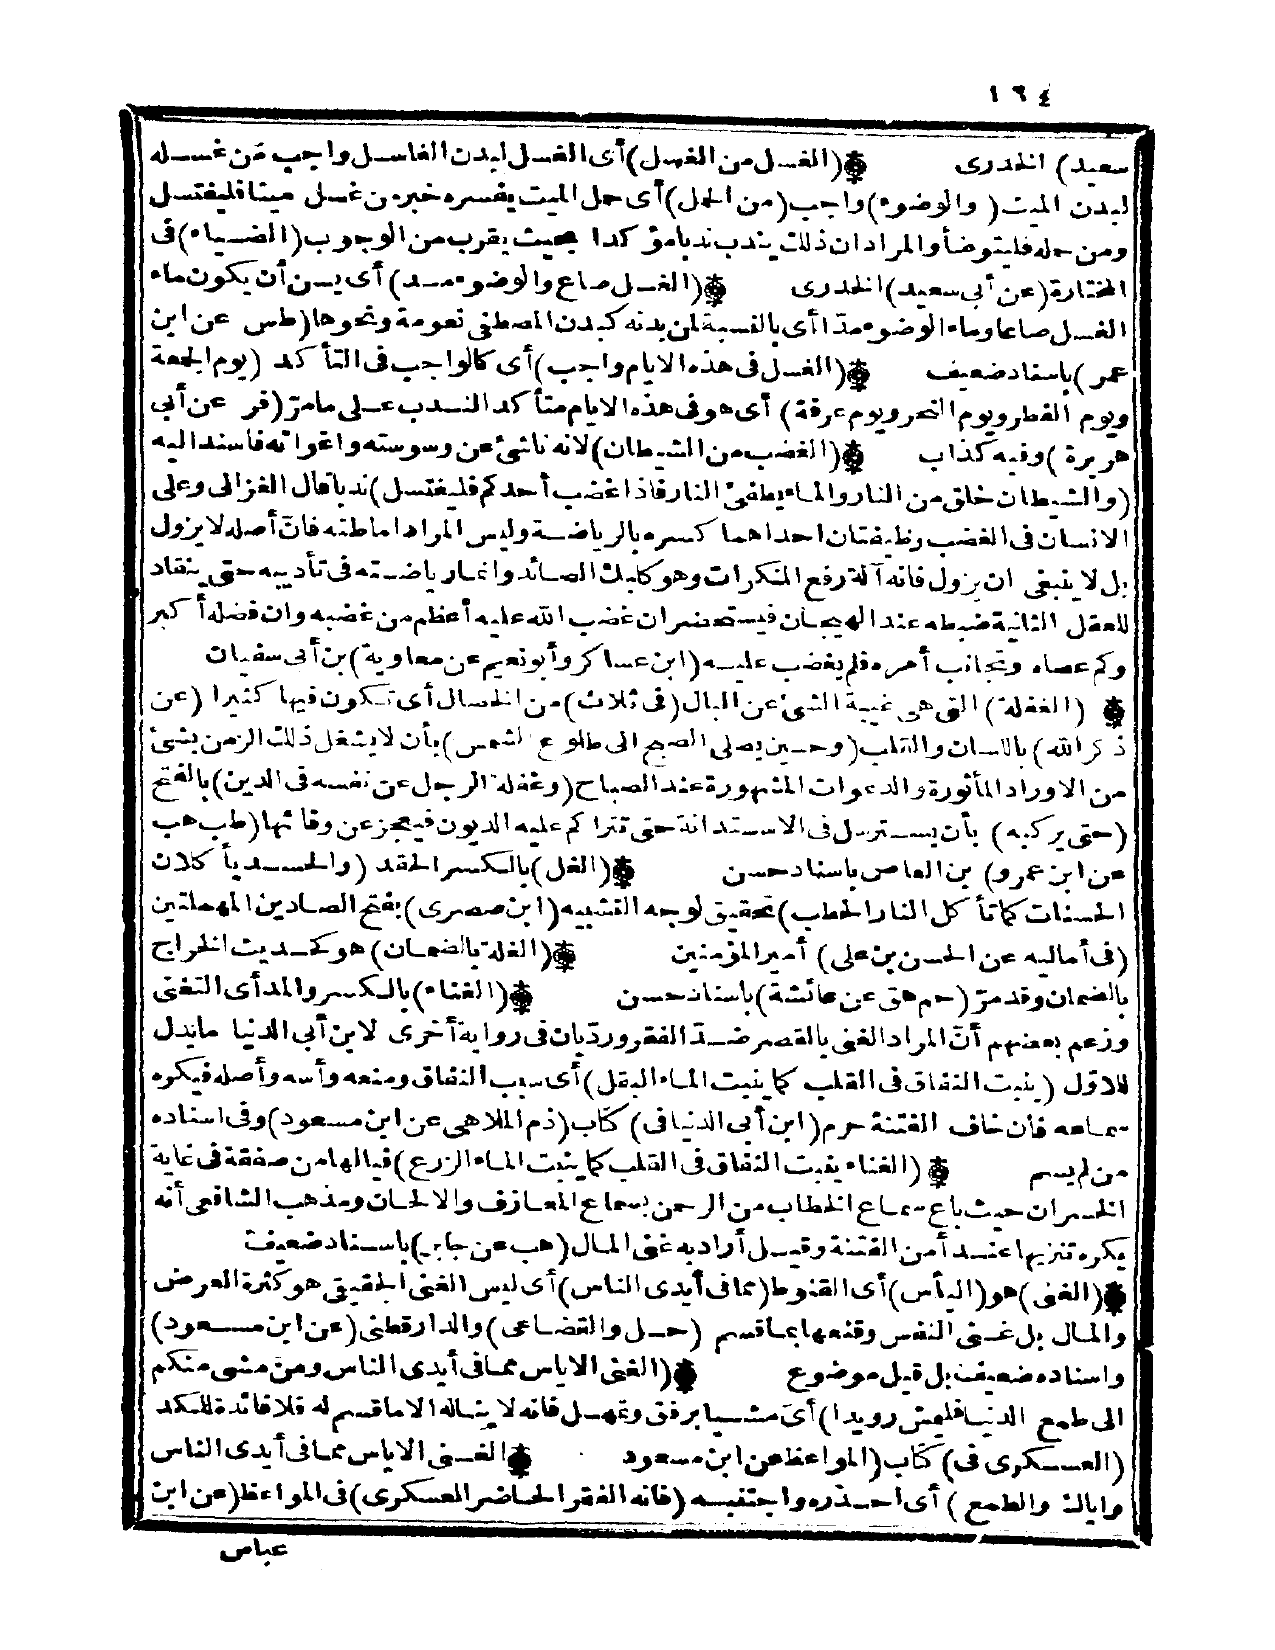 ١٦٤
سعيد) الخدرى ۞(الغسل من الغسل)أى الغسل لبدن الغاسل واجب من غسله
لبدن الميت (والوضوء)واجب(من الحمل)أى حمل الميت يفسره خبر من غسل ميتا فليغتسل
ومن حمله فليتوضأ والمراد ان ذلك يندب ندبا مؤكدا بحيث يقرب من الوجوب(الضياء)فى
المختارة(عن أبى سعيد)الخدرى ۞(الغسل صاع والوضوء مد)أى يسن أن يكون ماء
الغسل صاعا وماء الوضوء مدّا أى بالنسبة لمن بدنه كبدن المصطفى نعومة ونحوها(طس عن ابن
عمر)باسناد ضعيف ۞(الغسل فى هذه الايام واجب)أى كالواجب فى التأكد (يوم الجمعة
ويوم الفطر ويوم النحر ويوم عرفة) أى هو فى هذه الايام متأكد الندب على ما مرّ(فر عن أبى
هريرة)وفيه كذاب ۞(الغضب من الشيطان)لانه ناشئ عن وسوسته واغوائه فاسند اليه
(والشيطان خلق من النار والماء يطفئ النار فاذا غضب أحدكم فليغتسل)ندبا قال الغزالى وعلى
الانسان فى الغضب وظيفتان احداهما كسره بالرياضة وليس المراد اماطته فانّ أصله لا يزول
بل لا ينبغى ان يزول فانه آلة رفع المنكرات وهو كلب الصائد وانما رياضته فى تأديبه حتى ينقاد
للعقل الثانية ضبطه عند الهيجان فيستحضر ان غضب الله عليه أعظم من غضبه وان فضله أكبر
وكم عصاه وتجانب أمره فلم يغضب عليه(ابن عساكر وأبو نعيم عن معاوية)بن أبى سفيان
۞ (الغفلة) التى هى غيبة الشئ عن البال(فى ثلاث)من الخصال أى تكون فيها كثيرا (عن
ذكر الله)باللسان والقلب(وحين يصلى الصبح الى طلوع الشمس)بأن لا يشغل ذلك الزمن بشئ
من الاوراد المأثورة والدعوات المشهورة عند الصباح(وغفلة الرجل عن نفسه فى الدين)بالفتح
(حتى يركبه) بأن يسترسل فى الاستدانة حتى تتراكم عليه الديون فيعجز عن وفائها(طب هب
عن ابن عمرو) بن العاص باسناد حسن ۞(الغل)بالكسر الحقد (والحسد يأكلان
الحسنات كما تأكل النار الحطب)تحقيق لوجه التشبيه(ابن صصرى)بفتح الصادين المهملتين
(فى أماليه عن الحسن بن على) أمير المؤمنين ۞(الغلة بالضمان)هو كحديث الخراج
بالضمان وقد مرّ(حم هق عن عائشة)باسناد حسن ۞(الغناء)بالكسر والمد أى التغنى
وزعم بعضهم أنّ المراد الغنى بالقصر ضدّ الفقر وردّ بان فى رواية أخرى لابن أبى الدنيا ما يدل
للاوّل (ينبت النفاق فى القلب كما ينبت الماء البقل)أى سبب النفاق ومنبعه وأسه وأصله فيكره
سماعه فان خاف الفتنة حرم(ابن أبى الدنيا فى) كتاب(ذم الملاهى عن ابن مسعود)وفى اسناده
من لم يسم ۞(الغناء ينبت النفاق فى القلب كما ينبت الماء الزرع)فيا لها من صفقة فى غاية
الخسران حيث باع سماع الخطاب من الرحمن بسماع المعازف والالحان ومذهب الشافعى أنه
يكره تنزيها عند أمن الفتنة وقيل أراد به غنى المال(هب عن جابر)باسناد ضعيف
۞(الغنى)هو(اليأس)أى القنوط(مما فى أيدى الناس)أى ليس الغنى الحقيقى هو كثرة العرض
والمال بل غنى النفس وقنعها بما قسم (حل والقضاعى)والدارقطنى(عن ابن مسعود)
واسناده ضعيف بل قيل موضوع ۞(الغنى الاياس مما فى أيدى الناس ومن مشى منكم
الى طمع الدنيا فليمش رويدا)أى مشيا برفق وتمهل فانه لا يناله الا ما قسم له فلا فائدة للكد
(العسكرى فى) كتاب(المواعظ عن ابن مسعود ۞الغنى الاياس مما فى أيدى الناس
واياك والطمع ) أى احذره واجتنبه (فانه الفقر الحاضر العسكرى)فى المواعظ(عن ابن
عباس